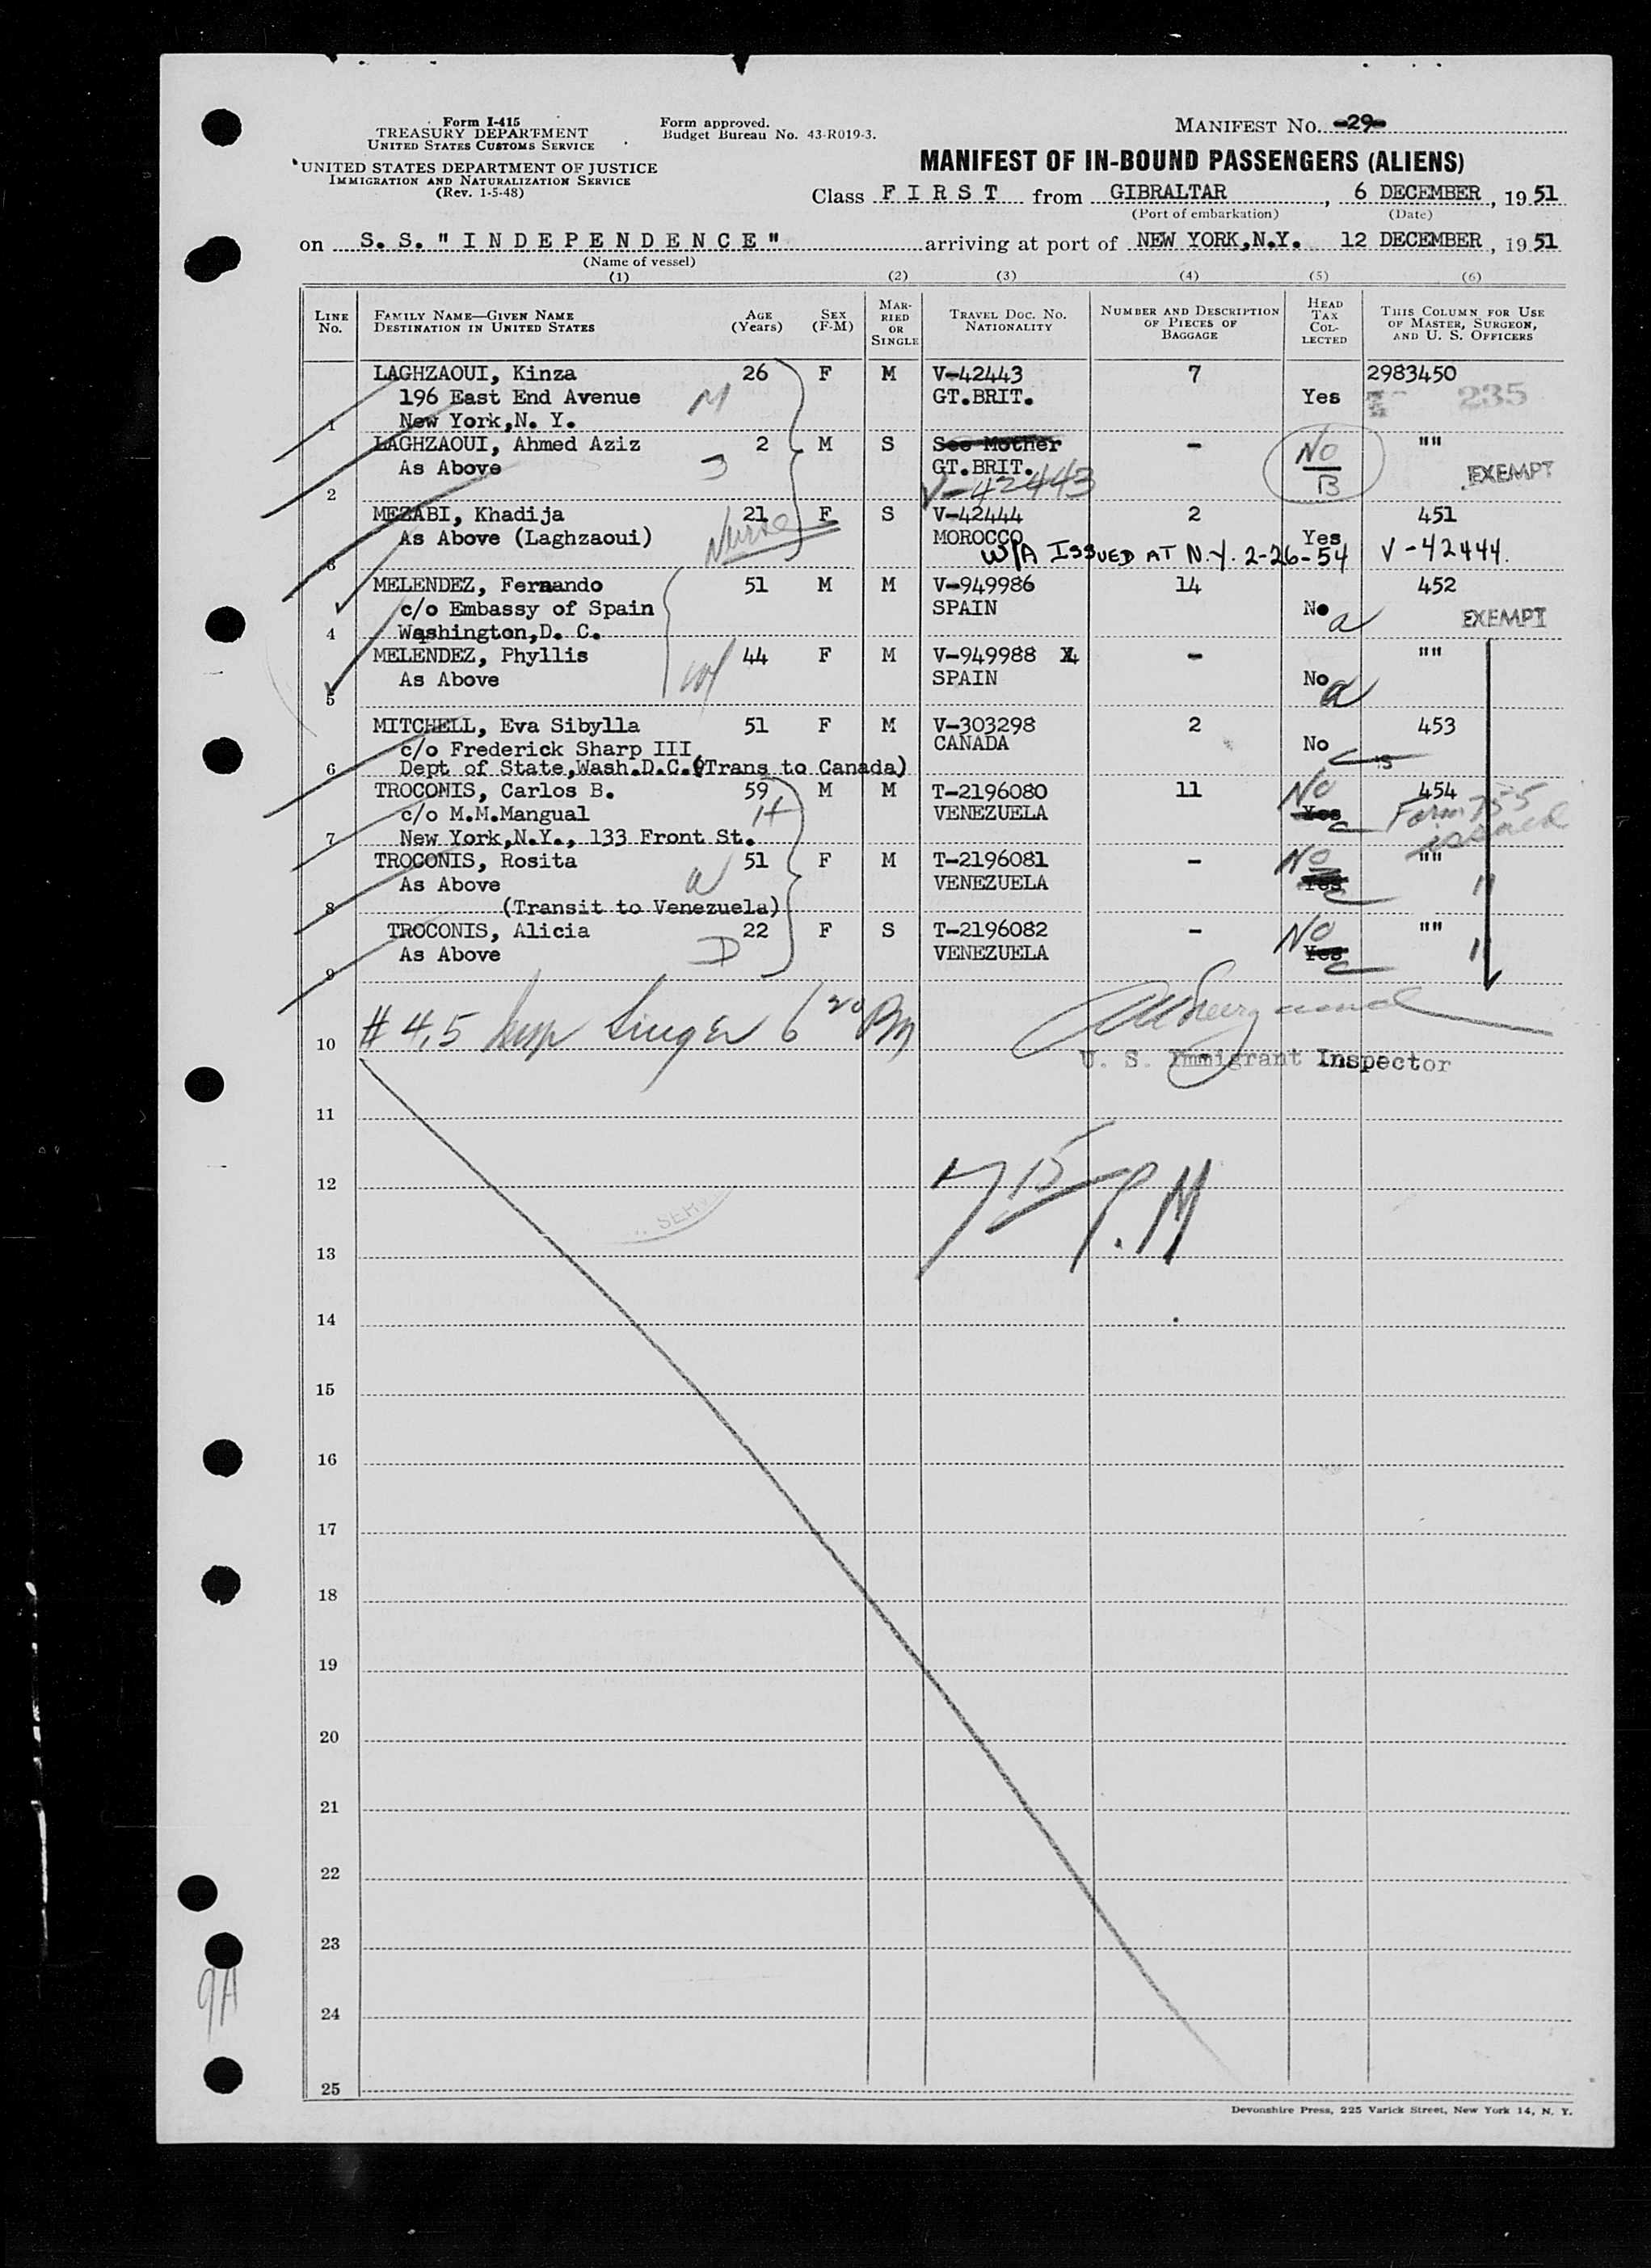 Form I-415
TREASURY DEPARTMENT
UNITED STATES CUSTOMS SERVICE
UNITED STATES DEPARTMENT OF JUSTICE
IMMIGRATION AND NATURALIZATION SERVICE
(Rev. 1-5-48)
Form approved.
Budget Bureau No. 43-R019-3.
MANIFEST NO. -29-
MANIFEST OF IN-BOUND PASSENGERS (ALIENS)
Class FIRST from GIBRALTAR, 6 DECEMBER, 1951
(Port of embarkation) (Date)
on S. S. "INDEPENDENCE" arriving at port of NEW YORK,N.Y. 12 DECEMBER, 1951
(Name of vessel)
(1) (2) (3) (4) (5) (6)
LINE No. FAMILY NAME—GIVEN NAME DESTINATION IN UNITED STATES AGE (Years) SEX (F-M) MARRIED OR SINGLE TRAVEL DOC. NO. NATIONALITY NUMBER AND DESCRIPTION OF PIECES OF BAGGAGE HEAD TAX COLLECTED THIS COLUMN FOR USE OF MASTER, SURGEON, AND U. S. OFFICERS
LAGHZAOUI, Kinza 26 F M V-42443 7 2983450
196 East End Avenue M GT.BRIT. Yes 235
1 New York,N. Y.
LAGHZAOUI, Ahmed Aziz 2 M S See Mother - No ""
As Above GT.BRIT. B EXEMPT
2 V-42443
MEZABI, Khadija 21 F S V-42444 2 451
As Above (Laghzaoui) Nurse MOROCCO Yes
3 W/A ISSUED AT N.Y. 2-26-54 V-42444.
MELENDEZ, Fernando 51 M M V-949986 14 452
c/o Embassy of Spain SPAIN No a EXEMPT
4 Washington,D. C.
MELENDEZ, Phyllis 44 F M V-949988 - ""
As Above W SPAIN No a
5
MITCHELL, Eva Sibylla 51 F M V-303298 2 453
c/o Frederick Sharp III CANADA No
6 Dept of State,Wash.D.C.(Trans to Canada)
TROCONIS, Carlos B. 59 M M T-2196080 11 No 454
c/o M.M.Mangual H VENEZUELA Yes Form 755
7 New York,N.Y., 133 Front St. issued
TROCONIS, Rosita 51 F M T-2196081 - No ""
As Above W VENEZUELA Yes "
8 (Transit to Venezuela)
TROCONIS, Alicia 22 F S T-2196082 - No ""
As Above D VENEZUELA Yes "
9
10 # 4,5 Insp Singer 6 20 PM
U. S. Immigrant Inspector
11
12 7 15 P.M
SERV
13
14
15
16
17
18
19
20
21
22
23
9A
24
25
Devonshire Press, 225 Varick Street, New York 14, N. Y.